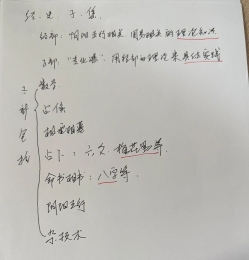 经.史.子.集.
经部:阴阳五行相关 周易相关的理论知识
子部."专业课":用经部的理论来具体实践
子部包括
数学
占候
相宅相墓
占卜:六爻 梅花易数
命书相书:八字等.
阴阳五行
杂技术